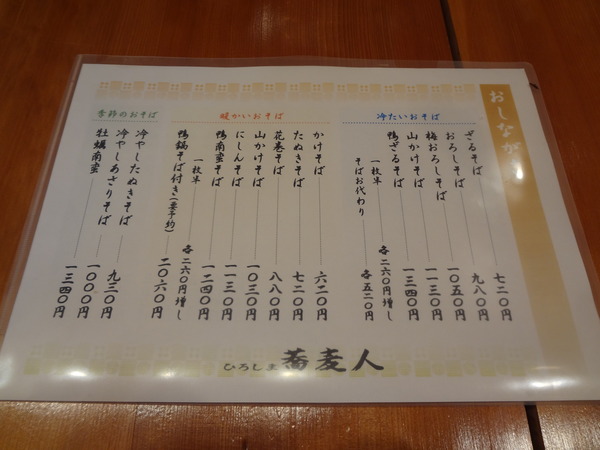 おしながき
冷たいおそば
ざるそば 七二〇円
おろしそば 九八〇円
梅おろしそば 一〇五〇円
山かけそば 一一三〇円
鴨ざるそば 一三四〇円
一枚半 各二六〇円増し
そばお代わり 各五二〇円
暖かいおそば
かけそば 六二〇円
たぬきそば 七二〇円
花巻そば 八八〇円
山かけそば 一〇三〇円
にしんそば 一一三〇円
鴨南蛮そば 一二四〇円
一枚半 各二六〇円増し
鴨鍋そば付き(要予約) 二〇六〇円
季節のおそば
冷やしたぬきそば 九三〇円
冷やしあさりそば 一〇〇〇円
牡蠣南蛮 一三四〇円
ひろしま 蕎麦人